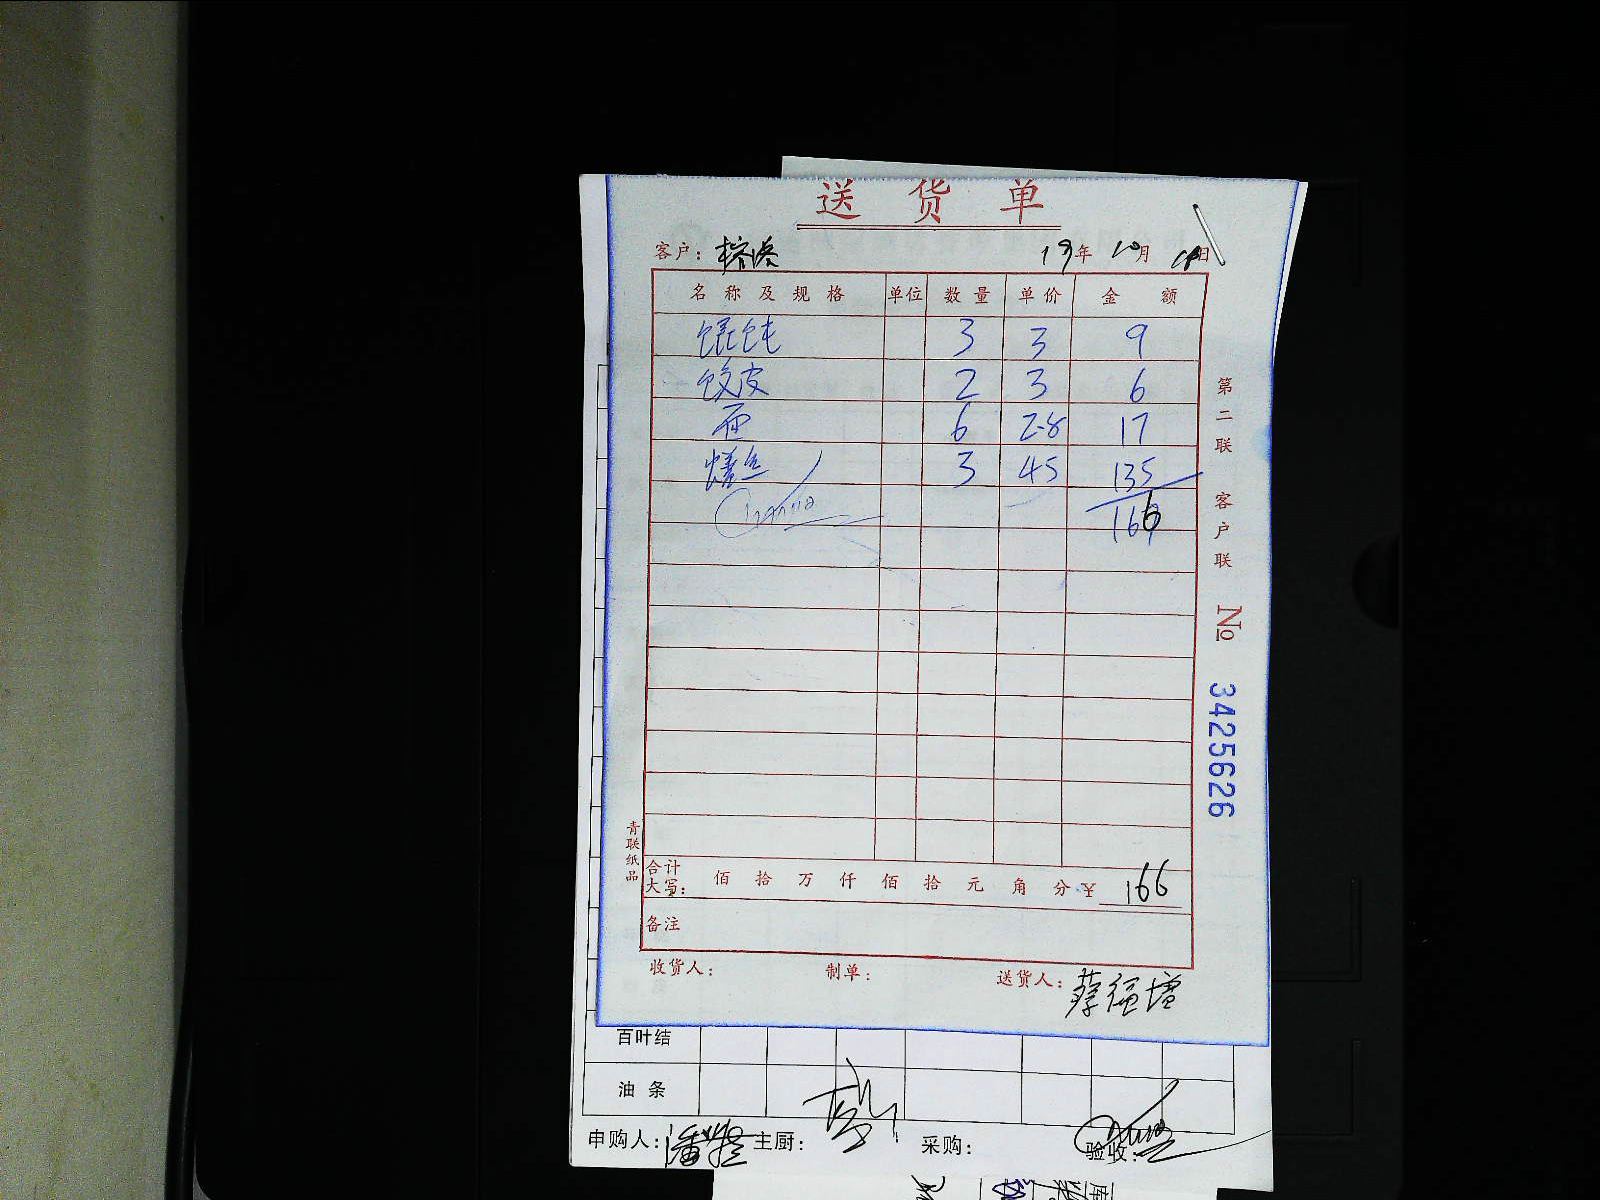 送货单
客户： 19年10月 日
名称及规格 单位 数量 单价 金额
馄饨 3 3 9
饺皮 2 3 6
面 6 2.8 17
3 45 135
166
第二联 客户联 No 3425626
青联纸品
合计大写： 佰 拾 万 仟 佰 拾 元 角 分 ¥ 166
备注
收货人： 制单： 送货人：
百叶结
油条
申购人： 主厨： 采购： 验收：